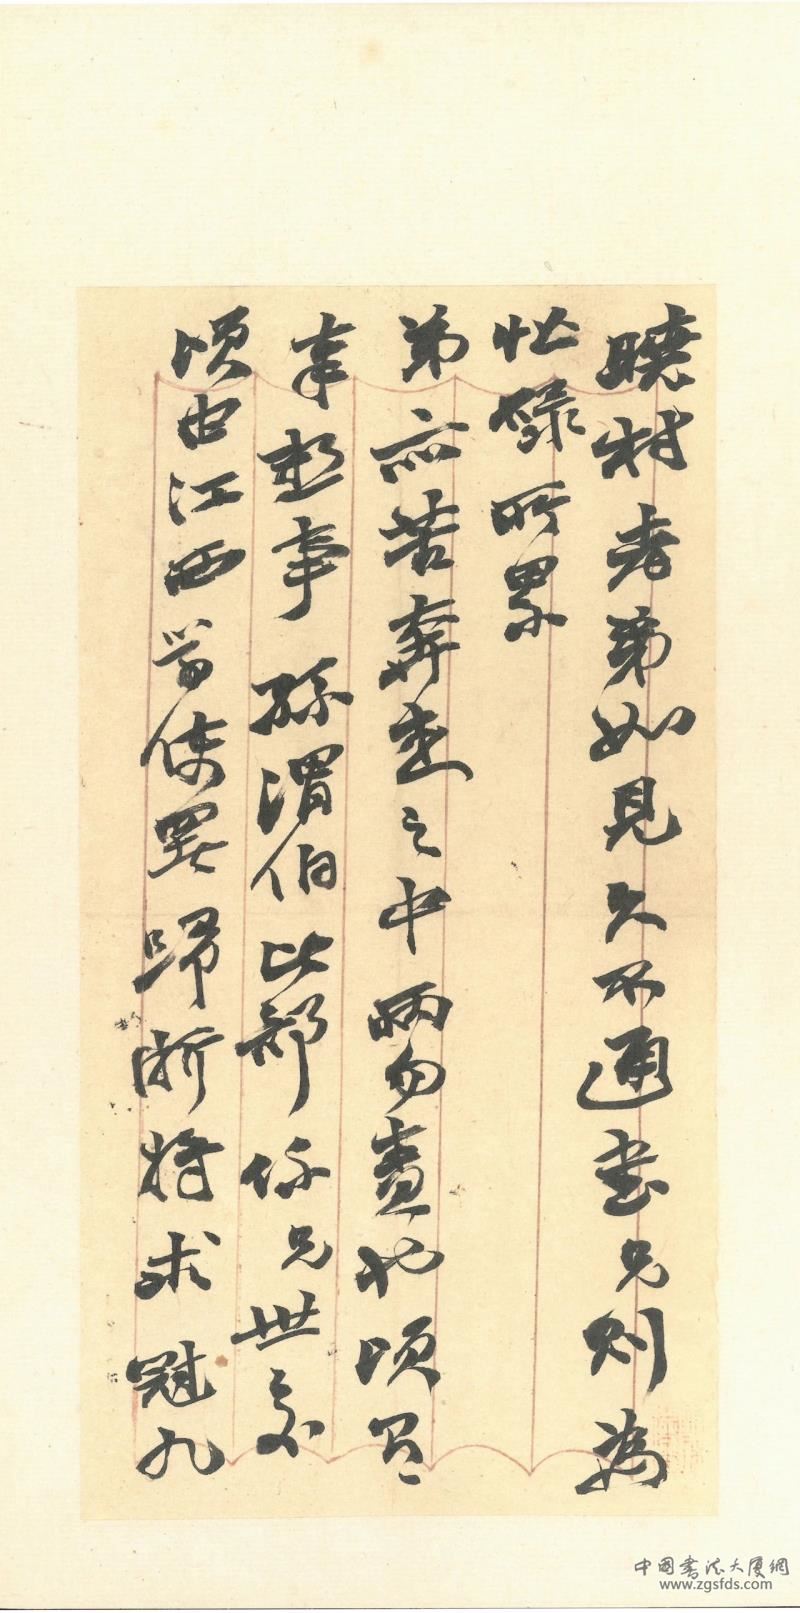 曉村老弟如見久不通書兄則為
忙碌所累
弟亦苦奔走之中兩勿責也頃
奉懇事孫渭伯比部係兄世交
頃由江西学使署歸浙將求冠九
中國書法大廈網
www.zgsfds.com